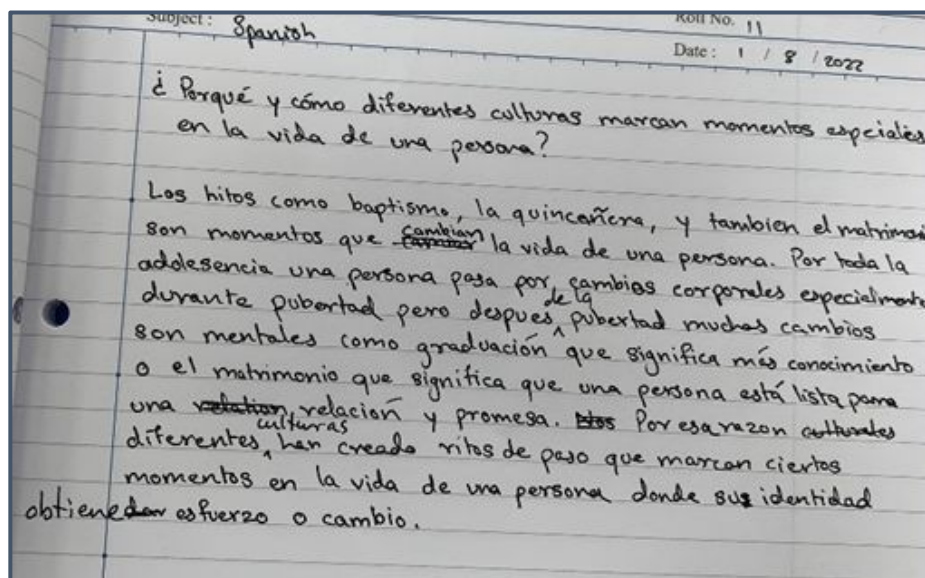 Subject : Spanish
Roll No. 11
Date : 1 / 8 / 2022
¿ Porqué y cómo diferentes culturas marcan momentos especiales
en la vida de una persona?
Los hitos como baptismo, la quinceañera, y tambien el matrimoni
son momentos que cambian la vida de una persona. Por toda la
adolesencia una persona pasa por cambios corporales especialmente
durante pubertad pero despues de la pubertad muchos cambios
son mentales como graduación que significa más conocimiento
o el matrimonio que significa que una persona está lista para
una relación y promesa. Por esa razon
diferentes culturas han creado ritos de paso que marcan ciertos
momentos en la vida de una persona donde su identidad
obtiene esfuerzo o cambio.